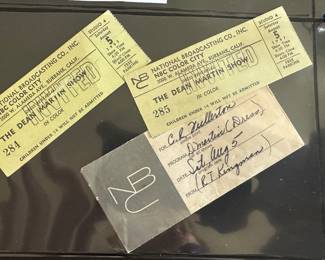 STUDIO 4
5
NATIONAL BROADCASTING CO., INC.
NBC COLOR CITY
3000 W. ALAMEDA AVE., BURBANK, CALIF.
THE DEAN MARTIN SHOW
IN COLOR
CHILDREN UNDER 14 WILL NOT BE ADMITTED
284
FREE PARKING
STUDIO 4
5
NATIONAL BROADCASTING CO., INC.
NBC COLOR CITY
3000 W. ALAMEDA AVE., BURBANK, CALIF.
THE DEAN MARTIN SHOW
IN COLOR
CHILDREN UNDER 14 WILL NOT BE ADMITTED
285
FREE PARKING
NBC
FOR
PROGRAM
D Martin (Dress)
DATE
Sat. Aug 5
FROM
(R T Kingman)
NBC